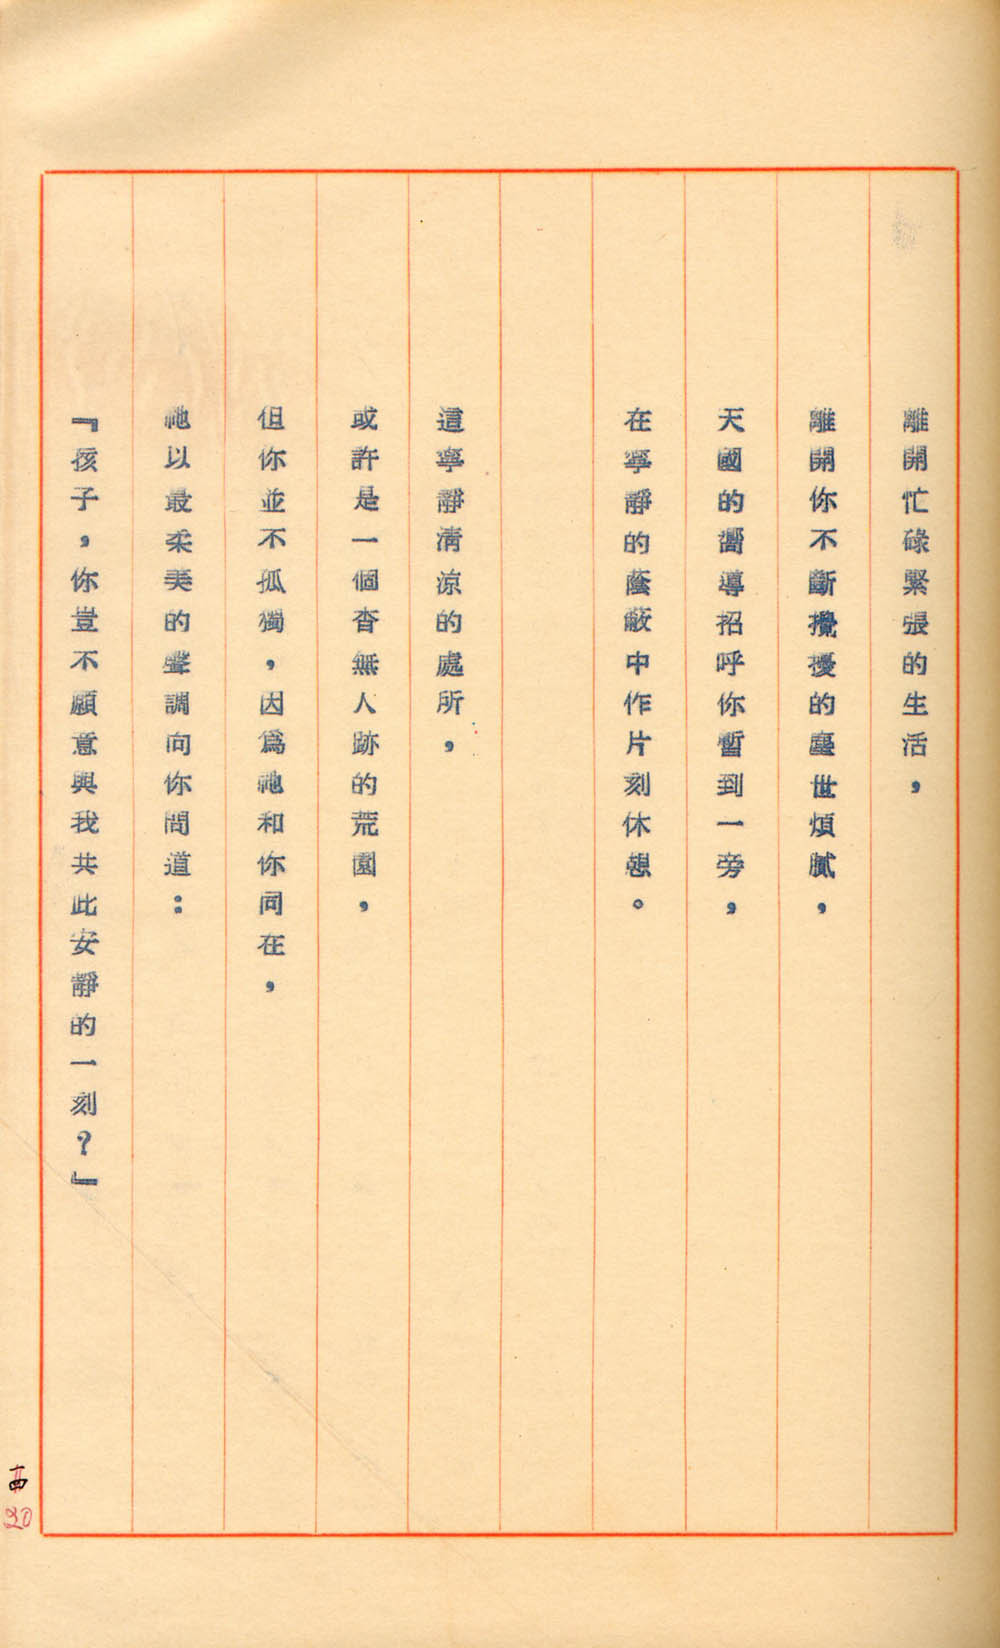 離開忙碌緊張的生活，
離開你不斷攪擾的塵世煩膩，
天國的嚮導招呼你暫到一旁，
在寧靜的蔭蔽中作片刻休憩。
這寧靜清涼的處所，
或許是一個杳無人跡的荒園，
但你並不孤獨，因爲祂和你同在，
祂以最柔美的聲調向你問道：
『孩子，你豈不願意與我共此安靜的一刻？』
20